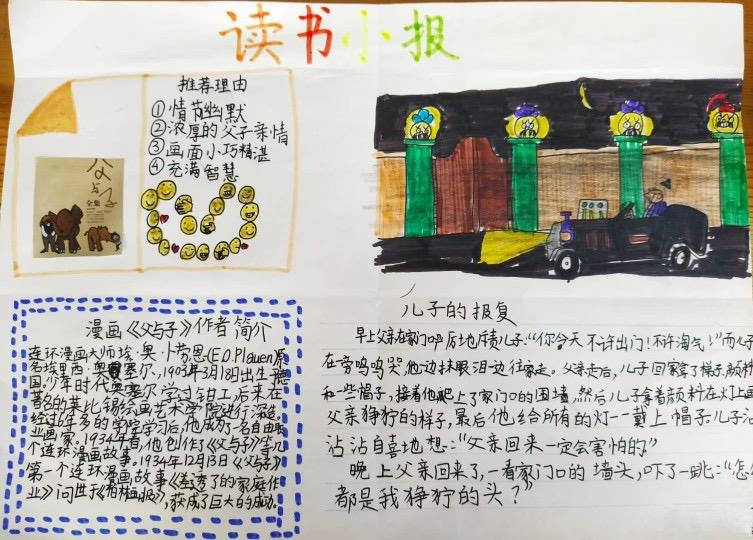 读书小报
推荐理由
①情节幽默
②浓厚的父子亲情
③画面小巧精湛
④充满智慧
父与子
全集
漫画《父与子》作者简介
连环漫画大师埃·奥·卜劳恩(E.O.Plauen)原
名埃里西·奥塞尔,1903年3月18日出生德
国。少年时代奥塞尔学过钳工,后来在
著名的莱比锡绘画艺术学院进行深造。
经过6年多的学院学习后,他成为了一名自由职
业画家。1934年有,他创作了《父与子》第几
个连环漫画故事。1934年12月13日《父与子》
第一个连环漫画故事《整秀了的家庭作
业》问世于《柏林画报》,获成了巨大的成功。
儿子的报复
早上父亲在家门口严厉地斥责儿子:“你今天不许出门!不许淘气!”而儿子
在旁呜呜哭,他边抹眼泪边往家走。父亲走后,儿子回家拿了梯子,颜料
和一些帽子,接着他爬上了家门口的围墙,然后儿子拿着颜料在灯上画
父亲狰狞的样子,最后他给所有的灯一一戴上帽子。儿子沾
沾沾自喜地想:“父亲回来一定会害怕的”
晚上父亲回来了,一看家门口的墙头,吓了一跳:“怎
都是我狰狞的头?”